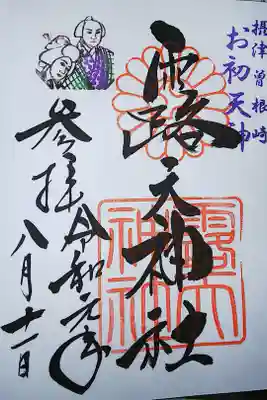 摂津曽根崎
お初天神
露天神社
参拝令和元年
八月十一日